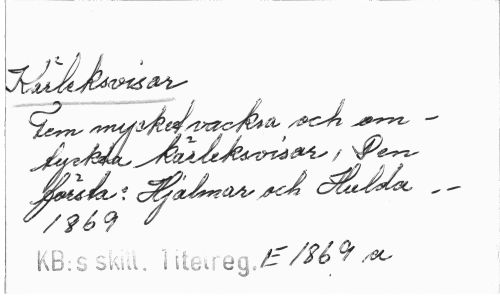 Kärleksvisor
Fem mycket vackra och om-
tyckta kärleksvisor, Den
första: Hjälmar och Hulda --
1869
KB:s skill. Titelreg. E 1869 a